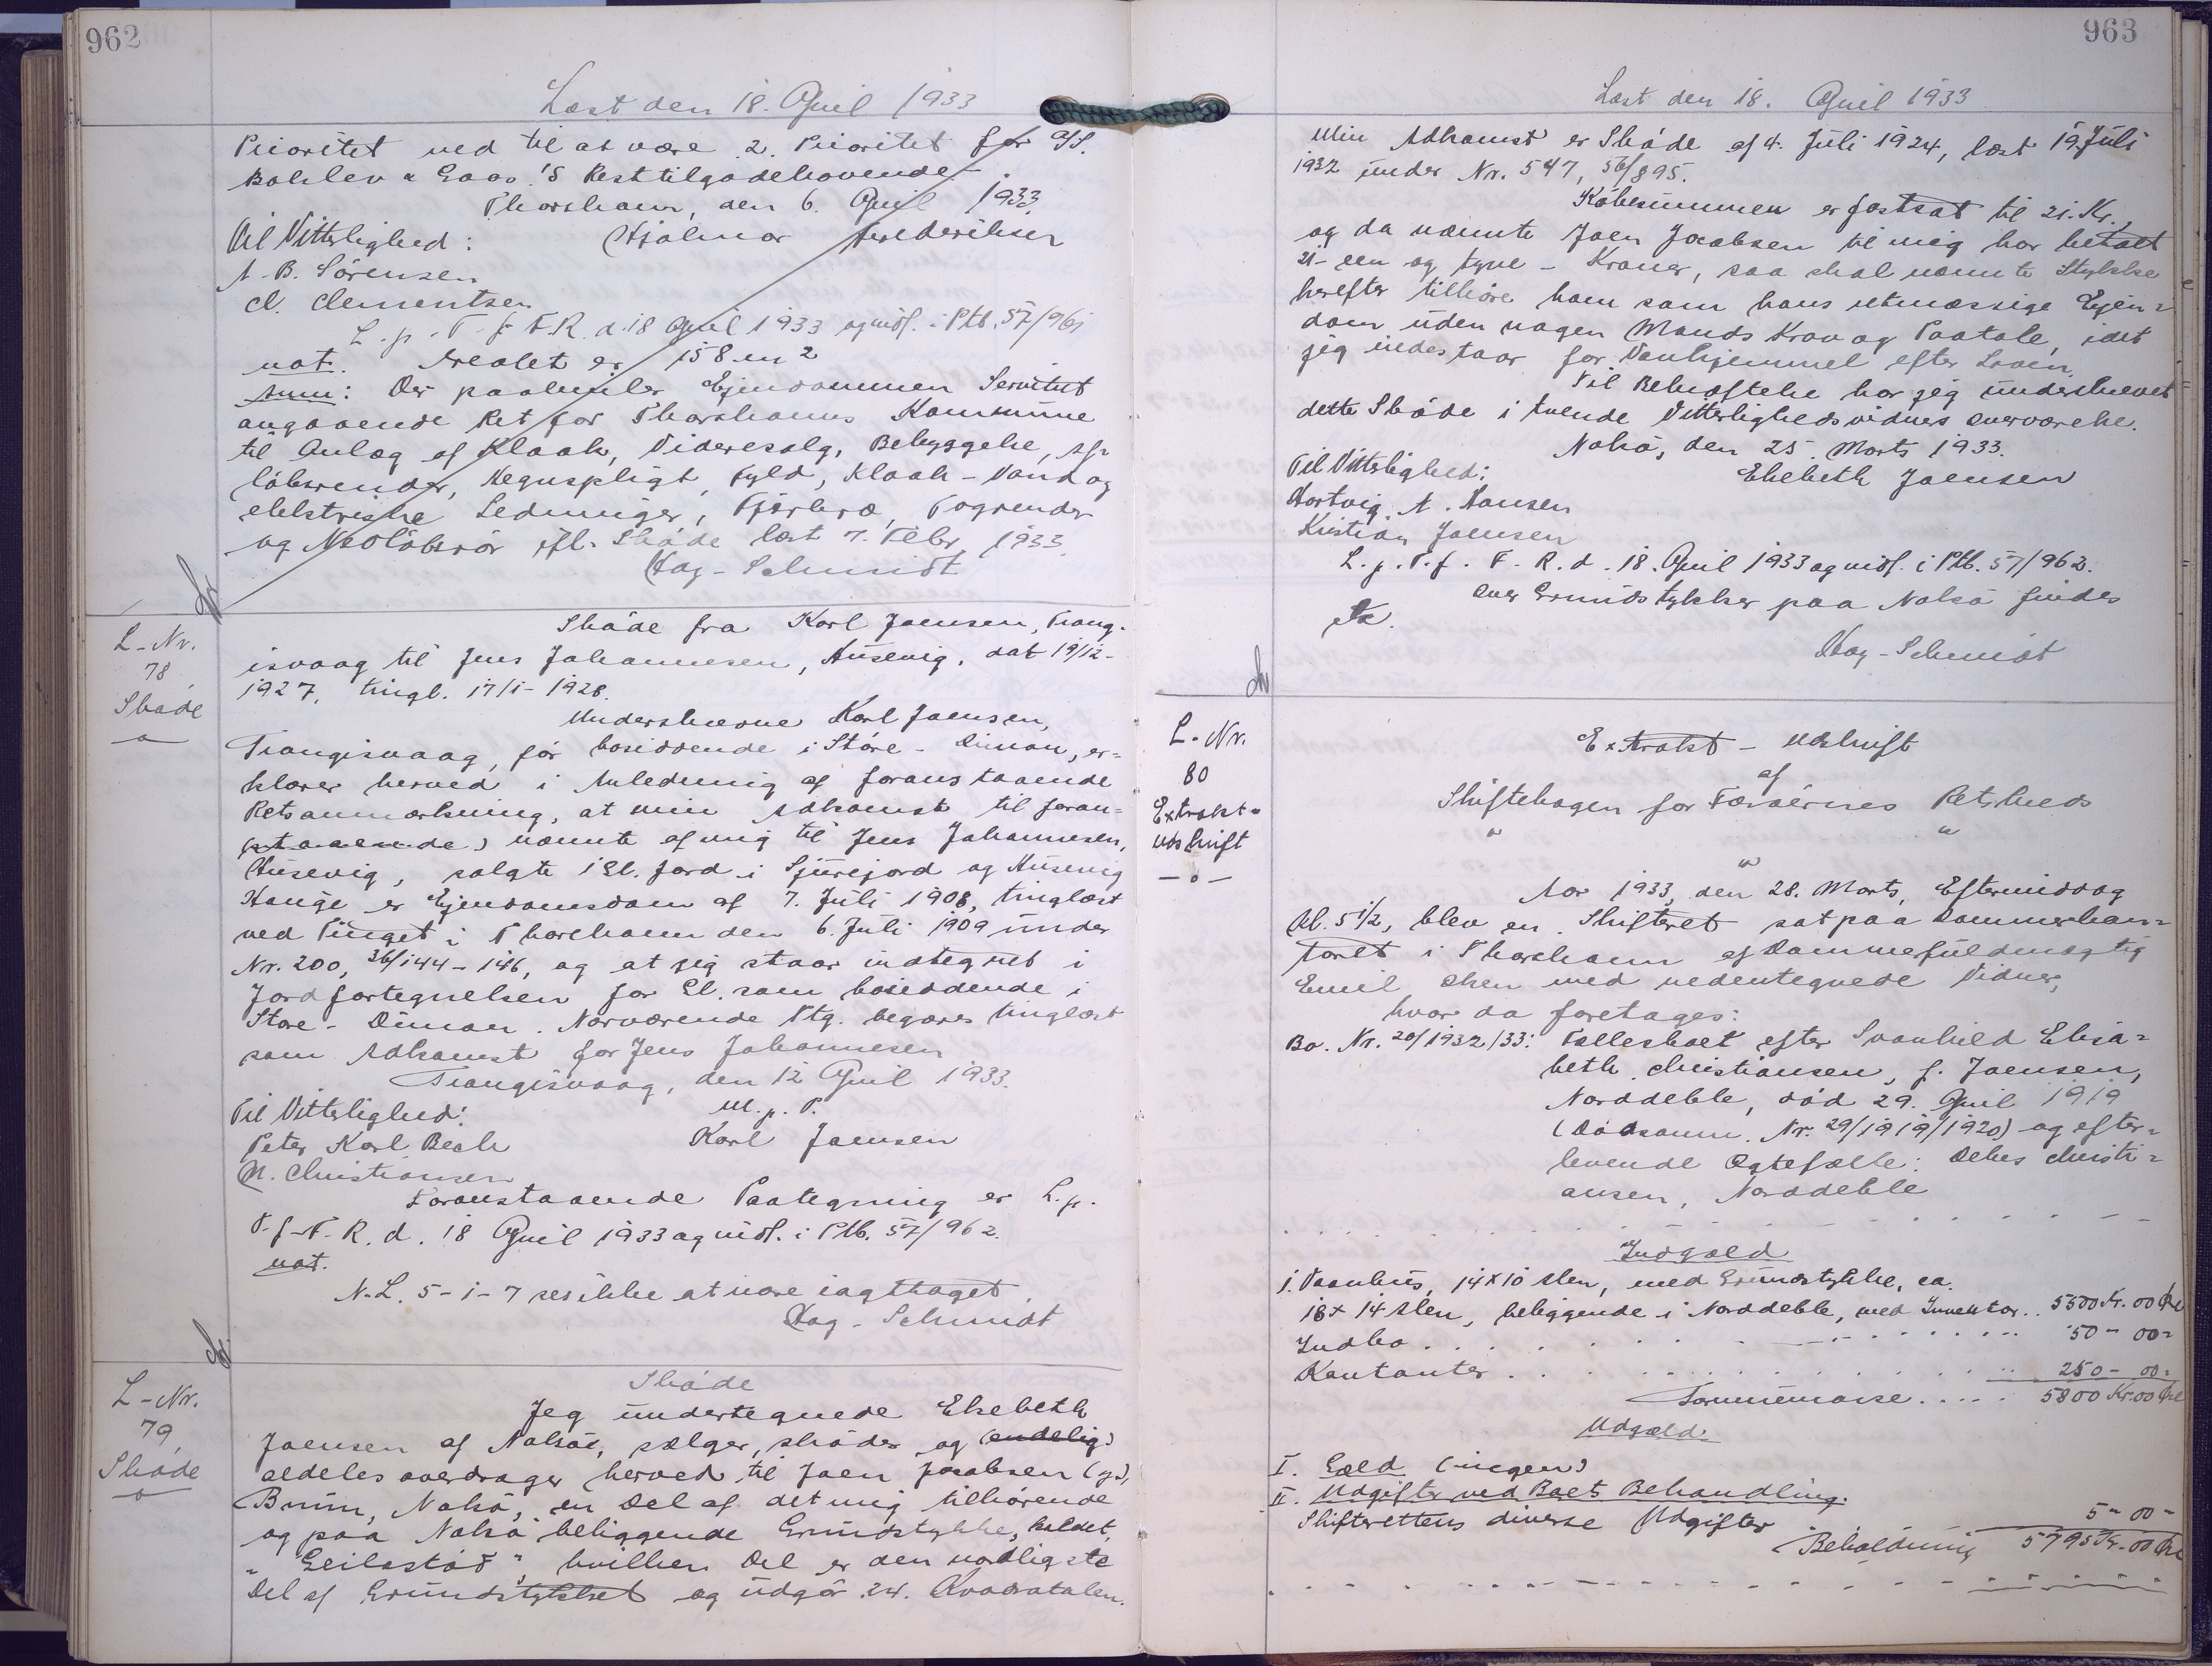 962
Læst den 18. April 1933
Prioritet ved til at være 2. Prioritet for A/S.
Balslev & Goos.'S Resttilgodehavende.
Thorshavn, den 6. April 1933.
Til Vitterlighed: Hjalmar Frederiksen
A. B. Sörensen
Cl. Clementsen
L. p. T. f. F. R. d. 18 April 1933 og indf. i Ptb. 57/961
not. Arealet er 158 m2
Anm: Der paahviler Ejendommen Servitut
angaaende Ret for Thorshavns Kommune
til Anlæg af Kloak, Videresalg, Bebyggelse, Af-
löbsrender, Hegnspligt, Fyld, Kloak - Vand og
elektriske Ledninger, Tagrender
og Nedlöbsrör ifl. Sköde læst 7. Febr. 1933.
Hag-Schmidt
L-Nr.
78
Sköde
Sköde fra Karl Joensen, Trang-
isvaag til Jens Johannesen, Húsevig, dat 19/12-
1927, tingl. 17/1-1928.
Underskrevne Karl Joensen,
Trangisvaag, för bosiddende i Store-Dimon, er=
klærer herved i Anledning af foranstaaende
Retsanmærkning, at min Adkomst til foran=
(staaende) nævnte af mig til Jens Johannesen,
Húsevig, solgte 1 Gl. Jord i Sjúrejord og Húsevig
Hauge er Ejendomsdom af 7. Júli 1908, tinglæst
ved Tinget i Thorshavn den 6. Júli 1909 únder
Nr. 200, 36/144-146, og at jeg staar indtegnet i
Jordfortegnelsen for Gl. som bosiddende i
Store-Dimon. Nærværende Ptg. begæres tinglæst
som Adkomst for Jens Johannesen
Trangisvaag, den 12 April 1933.
Til Vitterlighed: M. p. P.
Peter Karl Bech Karl Joensen
M. Christiansen
Foranstaaende Paategning er L. p.
T. f. F. R. d. 18 April 1933 og indf. i Ptb. 57/962.
not.
N. L. 5-1-7 ses ikke at være iagttaget.
Hag-Schmidt
L-Nr.
79
Sköde
Sköde
Jeg undertegnede Elsebeth
Joensen af Nolsö, sælger, sköder og (endelig)
aldeles overdrager herved til Joen Jacobsen (yg.),
Brúnn, Nolsö, en Del af det mig tilhörende
og paa Nolsö beliggende Grundstykke, kaldet,
"Geilastöd", hvilken Del er den nordligste
Del af Grundstykket og udgör 24. Kvadratalen.
963
Læst den 18. April 1933
Min Adkomst er Sköde af 4. Júli 1924, læst 19. Júli
1932 únder Nr. 547, 56/895.
Köbesummen er fastsat til 21. Kr.,
og da nævnte Joen Jacobsen til mig har betalt
21- een og tyve - Kroner, saa skal nævnte Stykke
herefter tilhöre ham som hans retmæssige Ejen=
dom uden nogen Mands Krav og Paatale, idet
jeg indestaar for Vanhjemmel efter Loven.
Til Bekræftelse har jeg únderskrevet
dette Sköde i tvende Vitterlighedsvidners Overværelse.
Nolsö, den 25. Marts 1933.
Til Vitterlighed: Elsebeth Joensen
Hartvig A. Hansen
Kristian Joensen
L. p. T. f. F. R. d. 18. April 1933 og indf. i Ptb. 57/962.
Over Grundstykker paa Nolsö findes
Hag-Schmidt
L-Nr.
80
Extrakt=
udskrift
Extrakt - Udskrift
af
Skiftebogen for Færöernes Retskreds
Aar 1933, den 28. Marts, Eftermiddag
Kl. 5 1/2, blev en Skifteret sat paa Dommerkon=
toret i Thorshavn af Dommerfuldmægtig
Emil Olsen med nedentegnede Vidner,
hvor da foretages:
Bo. Nr. 20/1932/33: Fællesboet efter Svanhild Elisa=
beth Christiansen, f. Joensen,
Norddeble, död 29. April 1919
(Dödsanm. Nr. 29/1919/1920) og efter=
levende Ægtefælle: Debes Christi=
ansen, Norddeble
Indgæld
1. Vaanhús, 14x10 Alen, med Grundstykke, ca.
18x14 Alen, beliggende i Norddeble, med Inventar.. 5500 Kr. 00 Øre
Indbo . . . 50 - 00 -
Kontanter . . . 250 - 00 -
Formuemasse . . . . 5800 Kr. 00 Øre
Udgæld
I. Gæld (ingen)
II. Udgifter ved Boets Behandling.
Skifterettens diverse Udgifter 5 - 00 -
Beholdning 5795 Kr. 00 Øre